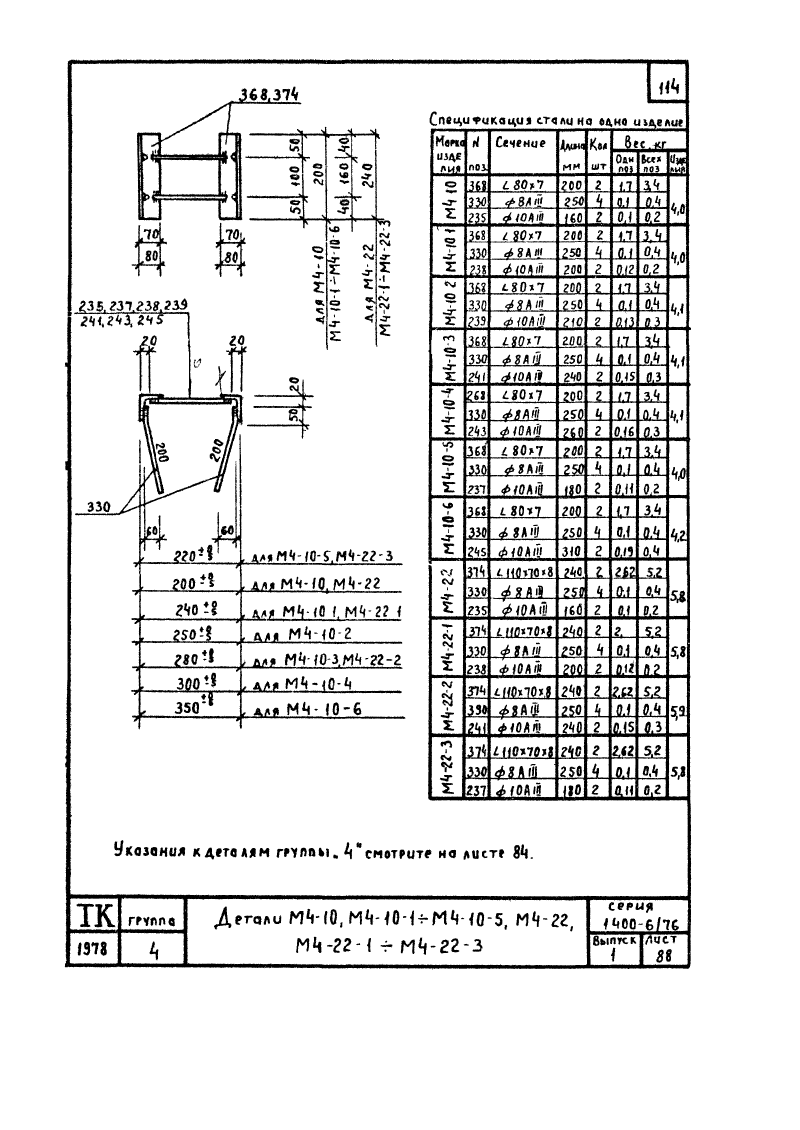 114
368,374
50
100
50
200
40
160
40
240
для М4-10
М4-10-1÷М4-10-6
для М4-22
М4-22-1÷М4-22-3
70
70
80
80
235,237,238,239
241,243,245
20
20
20
50
200
200
330
60
60
220 для М4-10-5, М4-22-3
200 для М4-10, М4-22
240 для М4-10 1, М4-22 1
250 для М4-10-2
280 для М4-10-3, М4-22-2
300 для М4-10-4
350 для М4-10-6
Спецификация стали на одно изделие
Марка изделия N поз. Сечение Длина мм Кол шт Вес, кг
Одн поз Всех поз Изделия
М4 10 368 L 80×7 200 2 1,7 3,4 4,0
330 ф8АIII 250 4 0,1 0,4
235 ф10АIII 160 2 0,1 0,2
М4-10 1 368 L 80×7 200 2 1,7 3,4 4,0
330 ф8АIII 250 4 0,1 0,4
238 ф10АIII 200 2 0,12 0,2
М4-10 2 368 L 80×7 200 2 1,7 3,4 4,1
330 ф8АIII 250 4 0,1 0,4
239 ф10АIII 210 2 0,13 0,3
М4-10-3 368 L 80×7 200 2 1,7 3,4 4,1
330 ф8АIII 250 4 0,1 0,4
241 ф10АIII 240 2 0,15 0,3
М4-10-4 268 L 80×7 200 2 1,7 3,4 4,1
330 ф8АIII 250 4 0,1 0,4
243 ф10АIII 260 2 0,16 0,3
М4-10-5 368 L 80×7 200 2 1,7 3,4 4,0
330 ф8АIII 250 4 0,1 0,4
237 ф10АIII 180 2 0,11 0,2
М4-10-6 368 L 80×7 200 2 1,7 3,4 4,2
330 ф8АIII 250 4 0,1 0,4
245 ф10АIII 310 2 0,19 0,4
М4-22 374 L110×70×8 240 2 2,62 5,2 5,8
330 ф8АIII 250 4 0,1 0,4
235 ф10АIII 160 2 0,1 0,2
М4-22-1 374 L110×70×8 240 2 2, 5,2 5,8
330 ф8АIII 250 4 0,1 0,4
238 ф10АIII 200 2 0,12 0,2
М4-22-2 374 L110×70×8 240 2 2,62 5,2 5,9
330 ф8АIII 250 4 0,1 0,4
241 ф10АIII 240 2 0,15 0,3
М4-22-3 374 L110×70×8 240 2 2,62 5,2 5,8
330 ф8АIII 250 4 0,1 0,4
237 ф10АIII 180 2 0,11 0,2
Указания к деталям группы „4" смотрите на листе 84.
ТК
1978
группа
4
Детали М4-10, М4-10-1÷М4-10-5, М4-22,
М4-22-1 ÷ М4-22-3
серия
1400-6/76
Выпуск
1
Лист
88